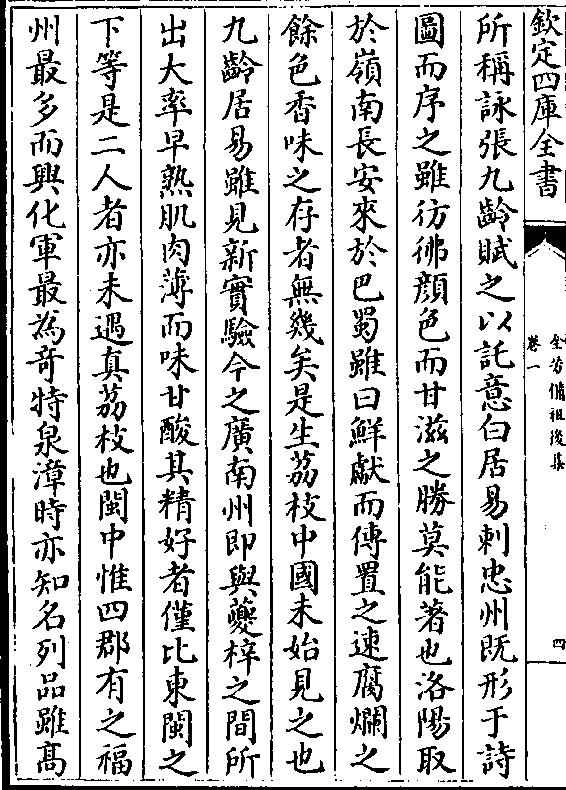 欽定四庫全書
全芳備祖後集
卷一
四
所稱詠張九齡賦之以託意白居易刺忠州既形于詩
圖而序之雖彷彿顔色而甘滋之勝莫能著也洛陽取
於嶺南長安來於巴蜀雖曰鮮獻而傳置之速腐爛之
餘色香味之存者無幾矣是生荔枝中國未始見之也
九齡居易雖見新實驗今之廣南州即與夔梓之間所
出大率早熟肌肉薄而味甘酸其精好者僅比東閩之
下等是二人者亦未遇真荔枝也閩中惟四郡有之福
州最多而興化軍最為竒特泉漳時亦知名列品雖髙